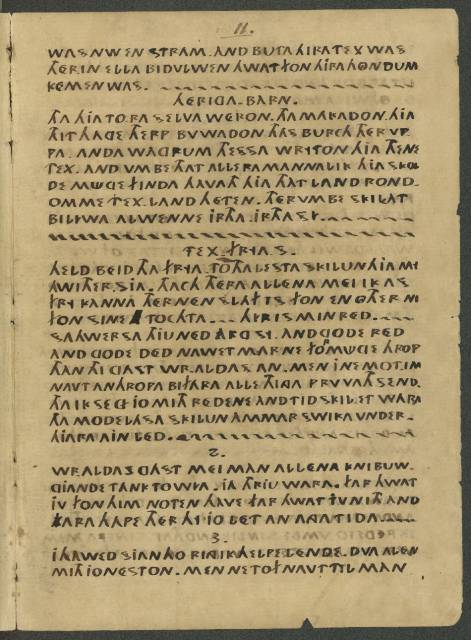 11.
WAS N WEN STRAM. AND BUTA HIRA TEX WAS
THER IN ELLA BIDULWEN HWAT FON HIRA HONDUM
KEMEN WAS.
HERIGA-BARN.
THA HIA TO.RA SELVA WERON. THA MAKADON. HIA
THIT HAGE THERP BUWADON THAS BURCH THER VP
PA. ANDA WAGRUM THESSA WRITON HIA THENE
TEX. AND VMBE THAT ALLERAMANNALIK HIA SKOL
DE MUGE FINDA HAVATH HIA THAT LAND ROND
OMME TEX.LAND HETEN. THERVMBE SKILAT
BILIWA AL WENNE IRTHA. IRTHA SI.
TEX.FRYA.S.
HELD BEID THA FRYA. TO THA LESTA SKILUN HIA MI
HWITHER.SIA. THACH THERA ALLENA MEI IK AS
FRY KANNA THER NEN SLAF IS FON EN OTHER NI
FON SINE TOCHTA. HIR IS MIN RED.
SAHWERSA THIU NED ARG SI. AND GODE RED
AND GODE DED NAWET MAR NE FORMUGE HROP
THAN THI GAST WR.ALDAS AN. MEN I NE MOT.IM
NAVT ANHROPA BIFARA ALLE THINGA PRVVATH SEND.
THA IK SEGIO MITH REDENE AND TID SKIL ET WARA
THA MODELASA SKILUN AMMAR SWIKA UNDER.
HIARA AIN LED.
2.
WR.ALDAS GAST MEI MAN ALLENA KNIBUW.
GIANDE TANK TO WIA. IA THRIU WARA. FAR HWAT
IV FON HIM NOTEN HAVE FAR HWAT IV NITH AND
FARA HAPE THER HI IO LET AN ANGA TIDA
3.
I HAWED SIAN HO RING IK HELPE LENDE. DVA AL EN
MITH IO NESTON. MEN NE TOF NAVT TIL MAN